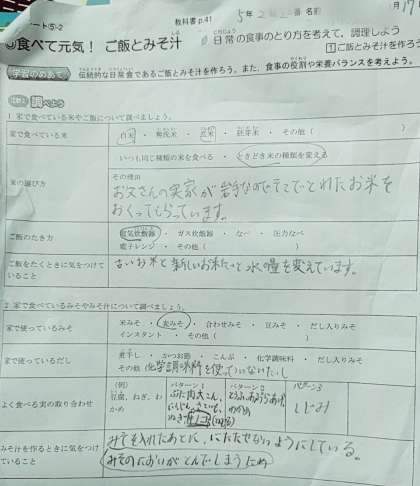 ート⑤-2
教科書p.41
5年2組 番 名前
月17
食べて元気! ご飯とみそ汁
日常の食事のとり方を考えて、調理しよう
1ご飯とみそ汁を作ろう
学習のめあて 伝統的な日常食であるご飯とみそ汁を作ろう。また、食事の役割や栄養バランスを考えよう。
調べよう
1 家で食べている米やご飯について調べましょう。
家で食べている米 白米 ・ 無洗米 ・ 玄米 ・ 胚芽米 ・ その他( )
米の選び方 いつも同じ種類の米を食べる ・ ときどき米の種類を変える
その理由
お父さんの実家が岩手なのでそこでとれたお米を
おくってもらっています。
ご飯のたき方 電気炊飯器 ・ ガス炊飯器 ・ なべ ・ 圧力なべ
電子レンジ ・ その他( )
ご飯をたくときに気をつけて
いること
古いお米と新しいお米だと水の量を変えています。
2 家で食べているみそやみそ汁について調べましょう。
家で使っているみそ 米みそ ・ 麦みそ ・ 合わせみそ ・ 豆みそ ・ だし入りみそ
インスタント ・ その他( )
家で使っているだし 煮干し ・ かつお節 ・ こんぶ ・ 化学調味料 ・ だし入りみそ
その他 化学調味料を使っていないだし
よく食べる実の取り合わせ
(例)
豆腐、ねぎ、わ
かめ
パターン1
ぶた肉 大こん
にんじん
ねぎ
パターン2
とうふ あぶらあげ
わかめ
パターン3
しじみ
みそ汁を作るときに気をつけ
ていること
みそを入れたあとに、にたたせないようにしている。
みそのにおいがとんでしまうため